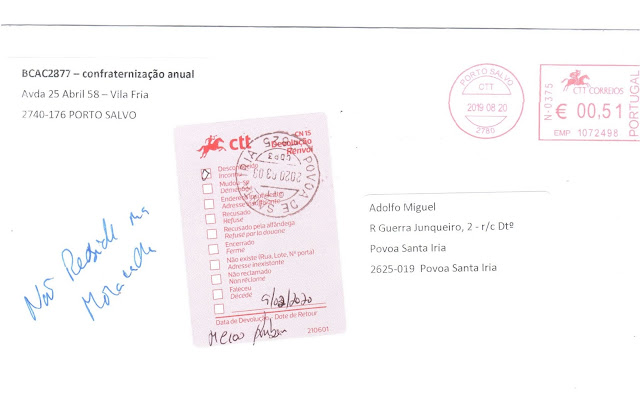 BCAC2877 – confraternização anual
Avda 25 Abril 58 – Vila Fria
2740-176 PORTO SALVO
PORTO SALVO
CTT
2019 08 20
2780
N-0375
CTT CORREIOS
€ 00,51
EMP 1072498
PORTUGAL
ctt
CN 15
Devolução
Renvoi
POVOA DE
2020 03 03
Desconhecido
Inconnu
Mudou-se
Déménagé
Endereço
Adresse
Recusado
Refusé
Recusado pela alfândega
Refusé par la douane
Encerrado
Fermé
Não existe (Rua, Lote, Nº portal)
Adresse inexistante
Não reclamado
Non réclamé
Faleceu
Décédé
Data de Devolução - Date de Retour
210601
Não Reside na
Morada
Adolfo Miguel
R Guerra Junqueiro, 2 - r/c Dtº
Povoa Santa Iria
2625-019 Povoa Santa Iria